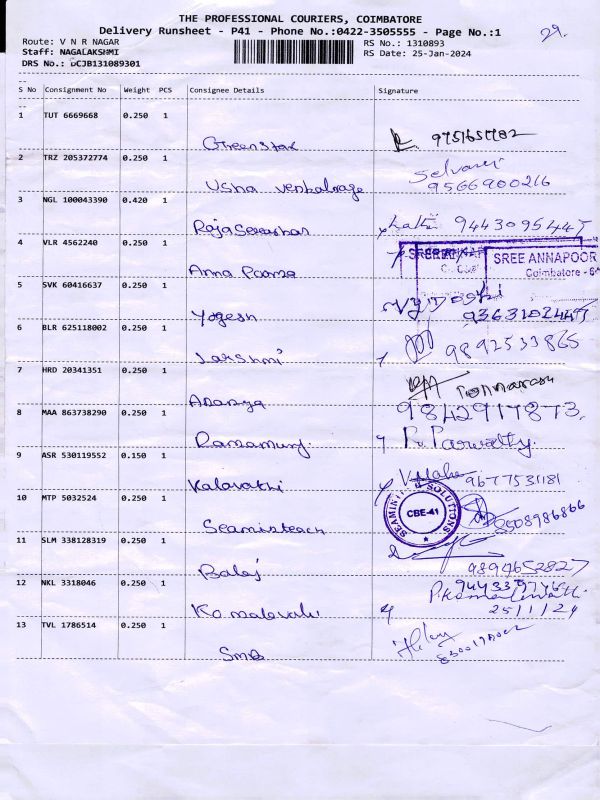 THE PROFESSIONAL COURIERS, COIMBATORE
Delivery Runsheet - P41 - Phone No.:0422-3505555 - Page No.:1
29.
Route: V N R NAGAR
RS No.: 1310893
Staff: NAGALAKSHMI
RS Date: 25-Jan-2024
DRS No.: DCJB131089301
S No Consignment No Weight PCS Consignee Details Signature
1 TUT 6669668 0.250 1
Greenstar
2 TRZ 205372774 0.250 1
Selvarani
Usha venkatnage 9566900216
3 NGL 100043390 0.420 1
Rajasekaran Lathi 9443095445
4 VLR 4562240 0.250 1
SREE ANNAPOOR
Coimbatore - 6
Anna Poorna
5 SVK 60416637 0.250 1
Yogesh 9363102445
6 BLR 625118002 0.250 1
Lakshmi 9892533865
7 HRD 20341351 0.250 1
Ananya
8 MAA 863738290 0.250 1 9842917873.
Ramamurj. P. Parwathy.
9 ASR 530119552 0.150 1
Kalavathi 9677531181
10 MTP 5032524 0.250 1
SEAMINTECH SOLUTIONS
CBE-41
Seamisteach 8508986866
11 SLM 338128319 0.250 1
Balaj 9894652827
12 NKL 3318046 0.250 1
Komalavalli 25/1/24
13 TVL 1786514 0.250 1
SMB